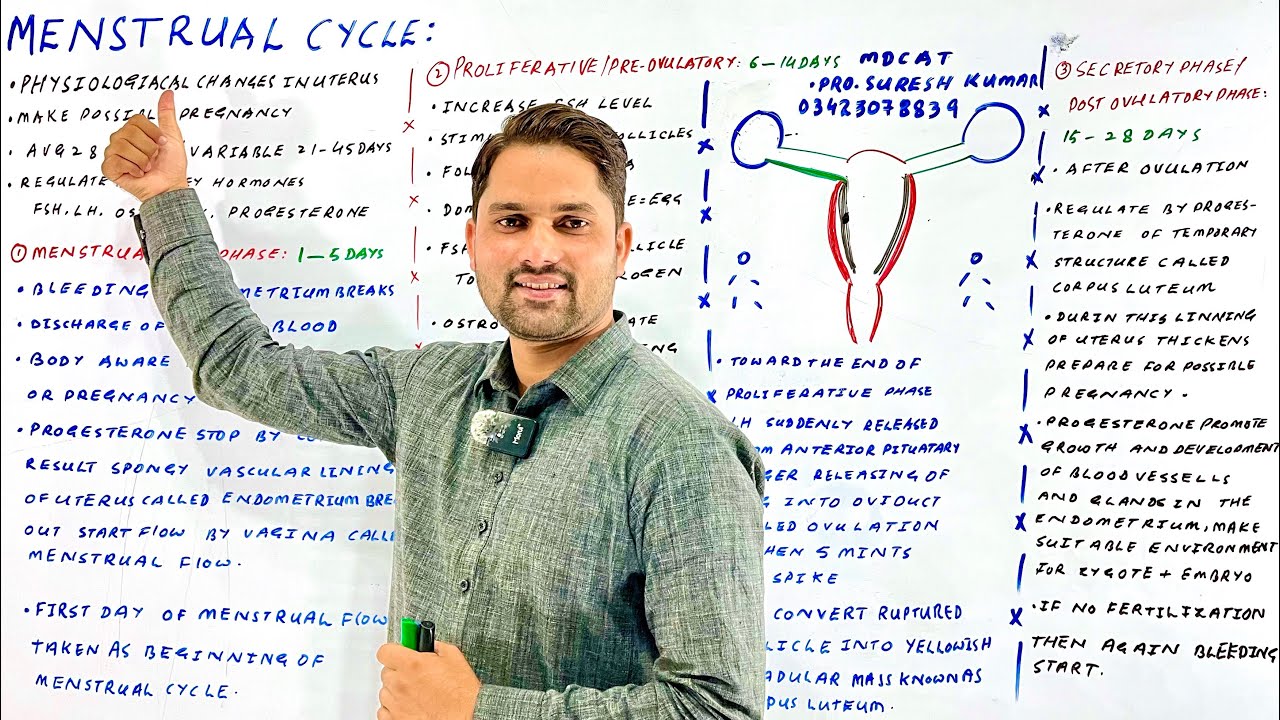 MENSTRUAL CYCLE:
• PHYSIOLOGIACAL CHANGES IN UTERUS
• MAKE POSSIBLE PREGNANCY
• AVG 28 VARIABLE 21-45 DAYS
• REGULATE HORMONES
FSH, LH, PROGESTERONE
① MENSTRUAL PHASE: 1-5 DAYS
• BLEEDING BREAKS
• DISCHARGE OF BLOOD
• BODY AWARE
OR PREGNANCY
• PROGESTERONE STOP BY
RESULT SPONGY VASCULAR LINING
OF UTERUS CALLED ENDOMETRIUM
OUT START FLOW BY VAGINA
MENSTRUAL FLOW.
• FIRST DAY OF MENSTRUAL FLOW
TAKEN AS BEGINNING OF
MENSTRUAL CYCLE.
② PROLIFERATIVE/PRE-OVULATORY: 6-14 DAYS
• INCREASE FSH LEVEL
FOLLICLES
=EGG
MDCAT
• PRO. SURESH KUMAR
03423078839
• TOWARD THE END OF
PROLIFERATIVE PHASE
LH SUDDENLY RELEASED
ANTERIOR PITUATARY
RELEASING OF
INTO OVIDUCT
OVULATION
5 MINTS
SPIKE
CONVERT RUPTURED
INTO YELLOWISH
MASS KNOWN AS
LUTEUM.
③ SECRETORY PHASE/
POST OVULATORY PHASE:
15-28 DAYS
• AFTER OVULATION
• REGULATE BY PROGES-
TERONE OF TEMPORARY
STRUCTURE CALLED
CORPUS LUTEUM
• DURIN THIS LINNING
OF UTERUS THICKENS
PREPARE FOR POSSIBLE
PREGNANCY.
• PROGESTERONE PROMOTE
GROWTH AND DEVELOPMENT
OF BLOOD VESSELLS
AND GLANDS IN THE
ENDOMETRIUM, MAKE
SUITABLE ENVIRONMENT
FOR ZYGOTE + EMBRYO
• IF NO FERTILIZATION
THEN AGAIN BLEEDING
START.